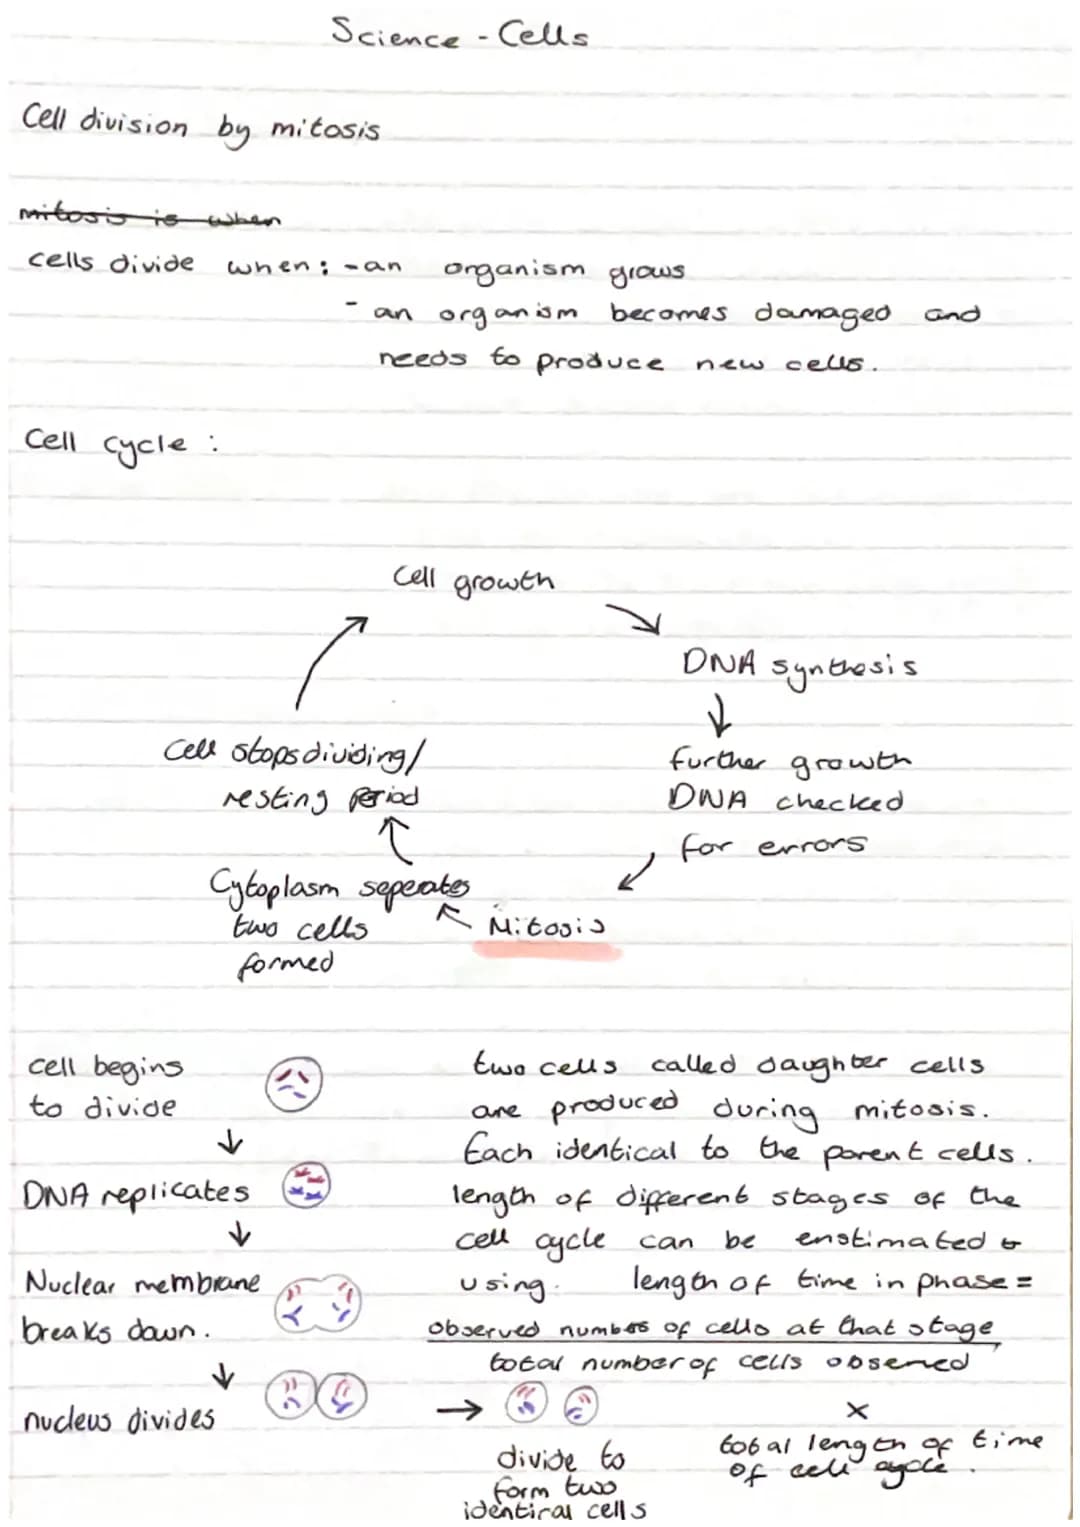 Science - Cells
Cell division by mitosis
mitosis is when
cells divide when: - an organism grows
- an organism becomes damaged and
needs to produce new cells.
Cell cycle :
Cell growth
DNA synthesis
further growth
DNA checked
for errors
Mitosis
Cytoplasm seperates
two cells
formed
Cell stops dividing/
resting period
cell begins
to divide
DNA replicates
Nuclear membrane
breaks down.
nucleus divides
divide to
form two
identical cells
two cells called daughter cells
are produced during mitosis.
Each identical to the parent cells.
length of different stages of the
cell cycle can be enstimated
using. length of time in phase =
observed number of cells at that stage
total number of cells observed
×
total length of time
of cell cycle.